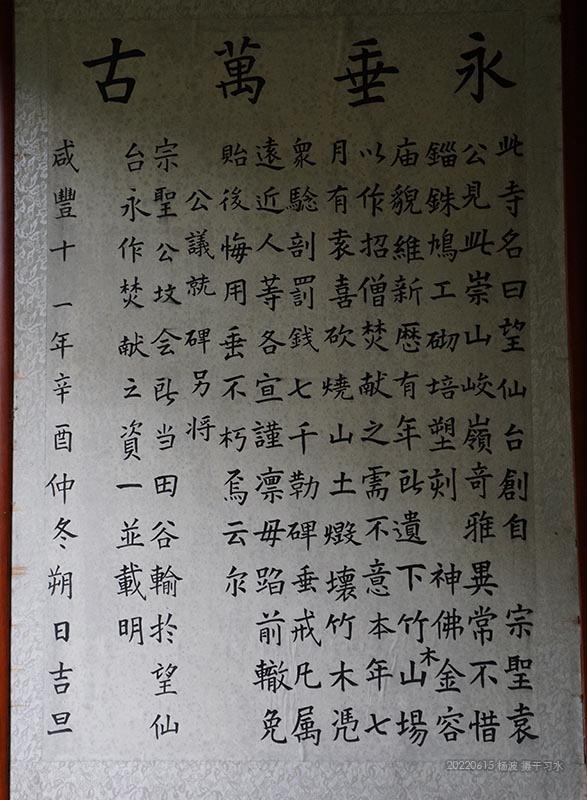 永垂萬古
此寺名曰望仙台創自 宗聖袁
公見此崇山峻嶺奇雅異常不惜
錙銖鳩工砌培塑刻 神佛金容
庙貌維新歷有年所遺下竹木山場
以作招僧焚献之需不意本年七
月有袁喜砍燒山土燬壞竹木憑
衆騐剖罰錢七千勒碑垂戒凡属
遠近人等各宣謹凛毋蹈前轍免
貽後悔用垂不朽焉云尔
公議就碑另将
宗聖公坟会所当田谷輸於望仙
台永作焚献之資一並載明
咸豐十一年辛酉仲冬朔日吉旦
20220615 杨波 摄于习水